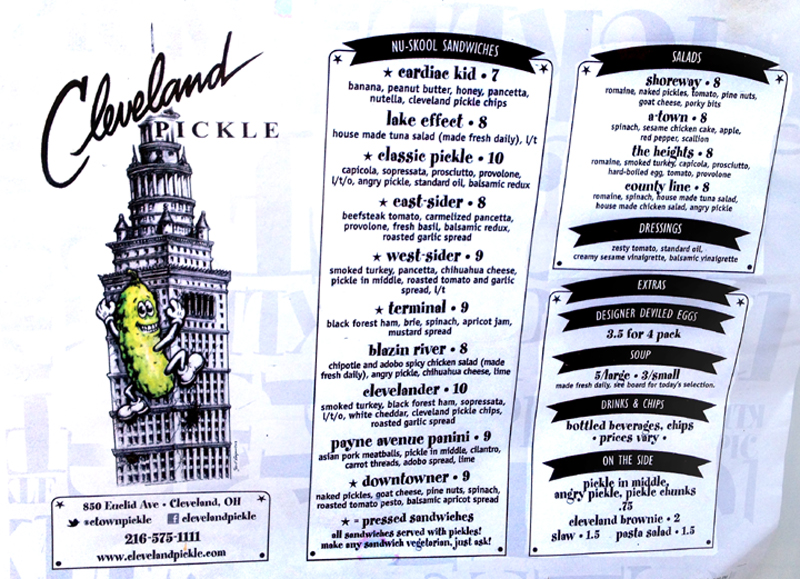 Cleveland
PICKLE
850 Euclid Ave • Cleveland, OH
@ctownpickle clevelandpickle
216-575-1111
www.clevelandpickle.com
NU-SKOOL SANDWICHES
★ cardiac kid • 7
banana, peanut butter, honey, pancetta,
nutella, cleveland pickle chips
lake effect • 8
house made tuna salad (made fresh daily), l/t
★ classic pickle • 10
capicola, sopressata, prosciutto, provolone,
l/t/o, angry pickle, standard oil, balsamic redux
★ east-sider • 8
beefsteak tomato, carmelized pancetta,
provolone, fresh basil, balsamic redux,
roasted garlic spread
★ west-sider • 9
smoked turkey, pancetta, chihuahua cheese,
pickle in middle, roasted tomato and garlic
spread, l/t
★ terminal • 9
black forest ham, brie, spinach, apricot jam,
mustard spread
blazin river • 8
chipotle and adobo spicy chicken salad (made
fresh daily), angry pickle, chihuahua cheese, lime
clevelander • 10
smoked turkey, black forest ham, sopressata,
l/t/o, white cheddar, cleveland pickle chips,
roasted garlic spread
payne avenue panini • 9
asian pork meatballs, pickle in middle, cilantro,
carrot threads, adobo spread, lime
★ downtowner • 9
naked pickles, goat cheese, pine nuts, spinach,
roasted tomato pesto, balsamic apricot spread
★ = pressed sandwiches
all sandwiches served with pickles!
make any sandwich vegetarian, just ask!
SALADS
shoreway • 8
romaine, naked pickles, tomato, pine nuts,
goat cheese, porky bits
a-town • 8
spinach, sesame chicken cake, apple,
red pepper, scallion
the heights • 8
romaine, smoked turkey, capicola, prosciutto,
hard-boiled egg, tomato, provolone
county line • 8
romaine, spinach, house made tuna salad,
house made chicken salad, angry pickle
DRESSINGS
zesty tomato, standard oil,
creamy sesame vinaigrette, balsamic vinaigrette
EXTRAS
DESIGNER DEVILED EGGS
3.5 for 4 pack
SOUP
5/large • 3/small
made fresh daily, see board for today's selection.
DRINKS & CHIPS
bottled beverages, chips
• prices vary •
ON THE SIDE
pickle in middle,
angry pickle, pickle chunks
.75
cleveland brownie • 2
slaw • 1.5 pasta salad • 1.5